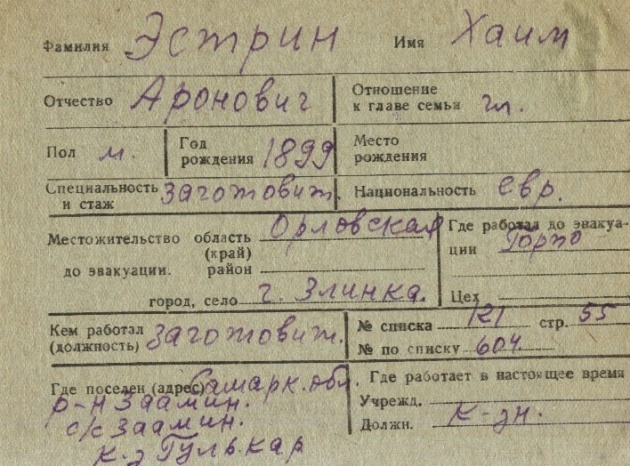 Фамилия Эстрин Имя Хаим
Отчество Аронович Отношение к главе семьи гл.
Пол м. Год рождения 1899 Место рождения
Специальность и стаж Заготовит. Национальность евр.
Местожительство область (край) Орловская Где работал до эвакуа-
ции Горпо
до эвакуации. район
город, село г. Злинка. Цех
Кем работал (должность) Заготовит. № списка 121 стр. 55
№ по списку 604.
Где поселен (адрес) Самарк. обл. Где работает в настоящее время
р-н Заамин. Учрежд.
с/с Заамин. Должн. к-зн.
к-з Гулькар